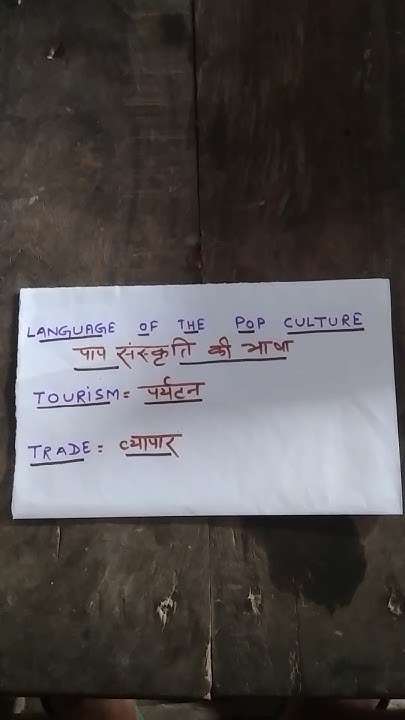 LANGUAGE OF THE POP CULTURE
पाप संस्कृति की भाषा
TOURISM = पर्यटन
TRADE = व्यापार